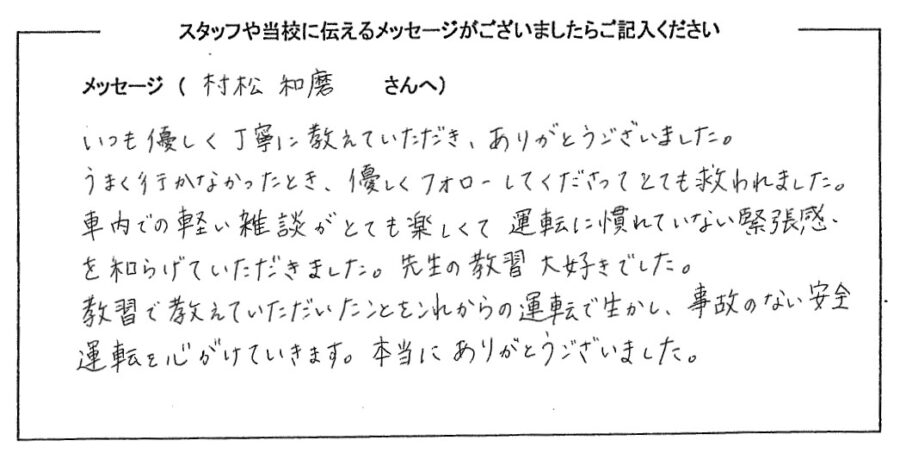 スタッフや当校に伝えるメッセージがございましたらご記入ください
メッセージ ( 村松 和磨 さんへ)
いつも優しく丁寧に教えていただき、ありがとうございました。
うまく行かなかったとき、優しくフォローしてくださってとても救われました。
車内での軽い雑談がとても楽しくて運転に慣れていない緊張感
を和らげていただきました。先生の教習大好きでした。
教習で教えていただいたことをこれからの運転で生かし、事故のない安全
運転を心がけていきます。本当にありがとうございました。